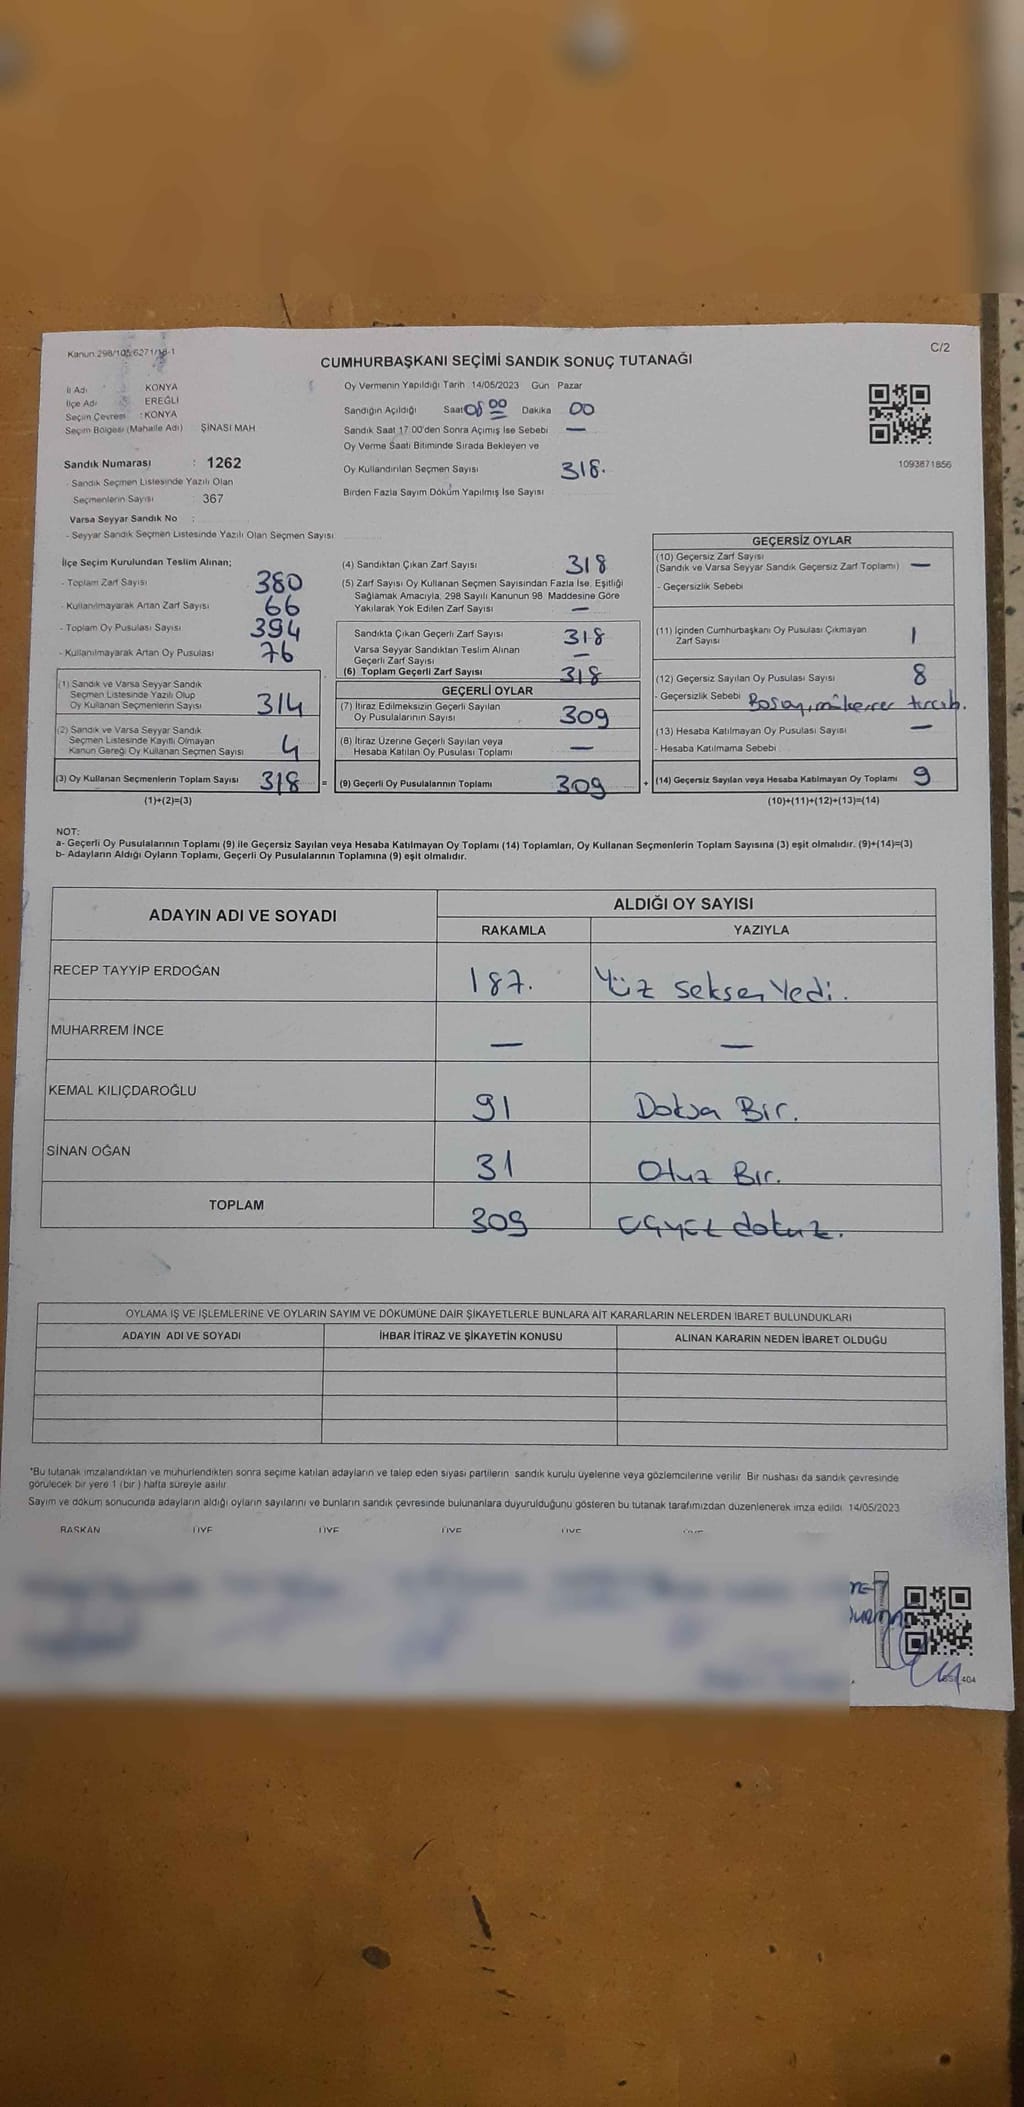 Kanun:298/105;6271/18-1
C/2
CUMHURBAŞKANI SEÇİMİ SANDIK SONUÇ TUTANAĞI
İl Adı KONYA
İlçe Adı EREĞLİ
Seçim Çevresi : KONYA
Seçim Bölgesi (Mahalle Adı) ŞİNASİ MAH
Sandık Numarası : 1262
- Sandık Seçmen Listesinde Yazılı Olan
Seçmenlerin Sayısı 367
Varsa Seyyar Sandık No :
- Seyyar Sandık Seçmen Listesinde Yazılı Olan Seçmen Sayısı
Oy Vermenin Yapıldığı Tarih : 14/05/2023 Gün : Pazar
Sandığın Açıldığı Saat 08 00 Dakika 00
Sandık Saat 17:00'den Sonra Açımış İse Sebebi —
Oy Verme Saati Bitiminde Sırada Bekleyen ve
Oy Kullandırılan Seçmen Sayısı 318.
Birden Fazla Sayım Döküm Yapılmış İse Sayısı
1093871856
İlçe Seçim Kurulundan Teslim Alınan;
- Toplam Zarf Sayısı 380
- Kullanılmayarak Artan Zarf Sayısı 66
- Toplam Oy Pusulası Sayısı 394
- Kullanılmayarak Artan Oy Pusulası 76
(1) Sandık ve Varsa Seyyar Sandık
Seçmen Listesinde Yazılı Olup
Oy Kullanan Seçmenlerin Sayısı 314
(2) Sandık ve Varsa Seyyar Sandık
Seçmen Listesinde Kayıtlı Olmayan
Kanun Gereği Oy Kullanan Seçmen Sayısı 4
(3) Oy Kullanan Seçmenlerin Toplam Sayısı 318 =
(1)+(2)=(3)
(4) Sandıktan Çıkan Zarf Sayısı 318
(5) Zarf Sayısı Oy Kullanan Seçmen Sayısından Fazla İse, Eşitliği
Sağlamak Amacıyla, 298 Sayılı Kanunun 98. Maddesine Göre
Yakılarak Yok Edilen Zarf Sayısı —
Sandıkta Çıkan Geçerli Zarf Sayısı 318
Varsa Seyyar Sandıktan Teslim Alınan
Geçerli Zarf Sayısı —
(6) Toplam Geçerli Zarf Sayısı 318
GEÇERLİ OYLAR
(7) İtiraz Edilmeksizin Geçerli Sayılan
Oy Pusulalarının Sayısı 309
(8) İtiraz Üzerine Geçerli Sayılan veya
Hesaba Katılan Oy Pusulası Toplamı —
(9) Geçerli Oy Pusulalarının Toplamı 309 +
GEÇERSİZ OYLAR
(10) Geçersiz Zarf Sayısı
(Sandık ve Varsa Seyyar Sandık Geçersiz Zarf Toplamı) —
- Geçersizlik Sebebi
(11) İçinden Cumhurbaşkanı Oy Pusulası Çıkmayan
Zarf Sayısı 1
(12) Geçersiz Sayılan Oy Pusulası Sayısı 8
- Geçersizlik Sebebi mükerrer tercih.
(13) Hesaba Katılmayan Oy Pusulası Sayısı —
- Hesaba Katılmama Sebebi
(14) Geçersiz Sayılan veya Hesaba Katılmayan Oy Toplamı 9
(10)+(11)+(12)+(13)=(14)
NOT:
a- Geçerli Oy Pusulalarının Toplamı (9) ile Geçersiz Sayılan veya Hesaba Katılmayan Oy Toplamı (14) Toplamları, Oy Kullanan Seçmenlerin Toplam Sayısına (3) eşit olmalıdır. (9)+(14)=(3)
b- Adayların Aldığı Oyların Toplamı, Geçerli Oy Pusulalarının Toplamına (9) eşit olmalıdır.
ADAYIN ADI VE SOYADI
ALDIĞI OY SAYISI
RAKAMLA YAZIYLA
RECEP TAYYİP ERDOĞAN 187. Yüz seksen Yedi.
MUHARREM İNCE — —
KEMAL KILIÇDAROĞLU 91 Doksan Bir.
SİNAN OĞAN 31 Otuz Bir.
TOPLAM 309 Üçyüz dokuz.
OYLAMA İŞ VE İŞLEMLERİNE VE OYLARIN SAYIM VE DÖKÜMÜNE DAİR ŞİKAYETLERLE BUNLARA AİT KARARLARIN NELERDEN İBARET BULUNDUKLARI
ADAYIN ADI VE SOYADI İHBAR İTİRAZ VE ŞİKAYETİN KONUSU ALINAN KARARIN NEDEN İBARET OLDUĞU
*Bu tutanak imzalandıktan ve mühürlendikten sonra seçime katılan adayların ve talep eden siyasi partilerin sandık kurulu üyelerine veya gözlemcilerine verilir. Bir nüshası da sandık çevresinde
görülecek bir yere 1 (bir) hafta süreyle asılır.
Sayım ve döküm sonucunda adayların aldığı oyların sayılarını ve bunların sandık çevresinde bulunanlara duyurulduğunu gösteren bu tutanak tarafımızdan düzenlenerek imza edildi. 14/05/2023
BAŞKAN ÜYE ÜYE ÜYE ÜYE